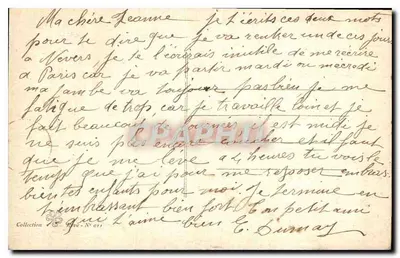 Ma chére Jeanne je t'écrits ces deux mots
pour te dire que je va rentrer un de ces jours
a Nevers je te l'écrirais inutile de me récrire
a Paris car je va partir mardi ou mecredi
ma jambe va toujours pas bien je me
fatigue de trop car je travaille loin et je
fait beaucoup de il est midi je
ne suis pas encore coucher et il faut
que je me leve a 2 heures tu vois le
temps que j'ai pour me reposer embrasse
bien tes enfants pour moi. Je termine en
t'embrassant bien fort ton petit ami
qui t'aime bien E.
Collection
CPRPHIL